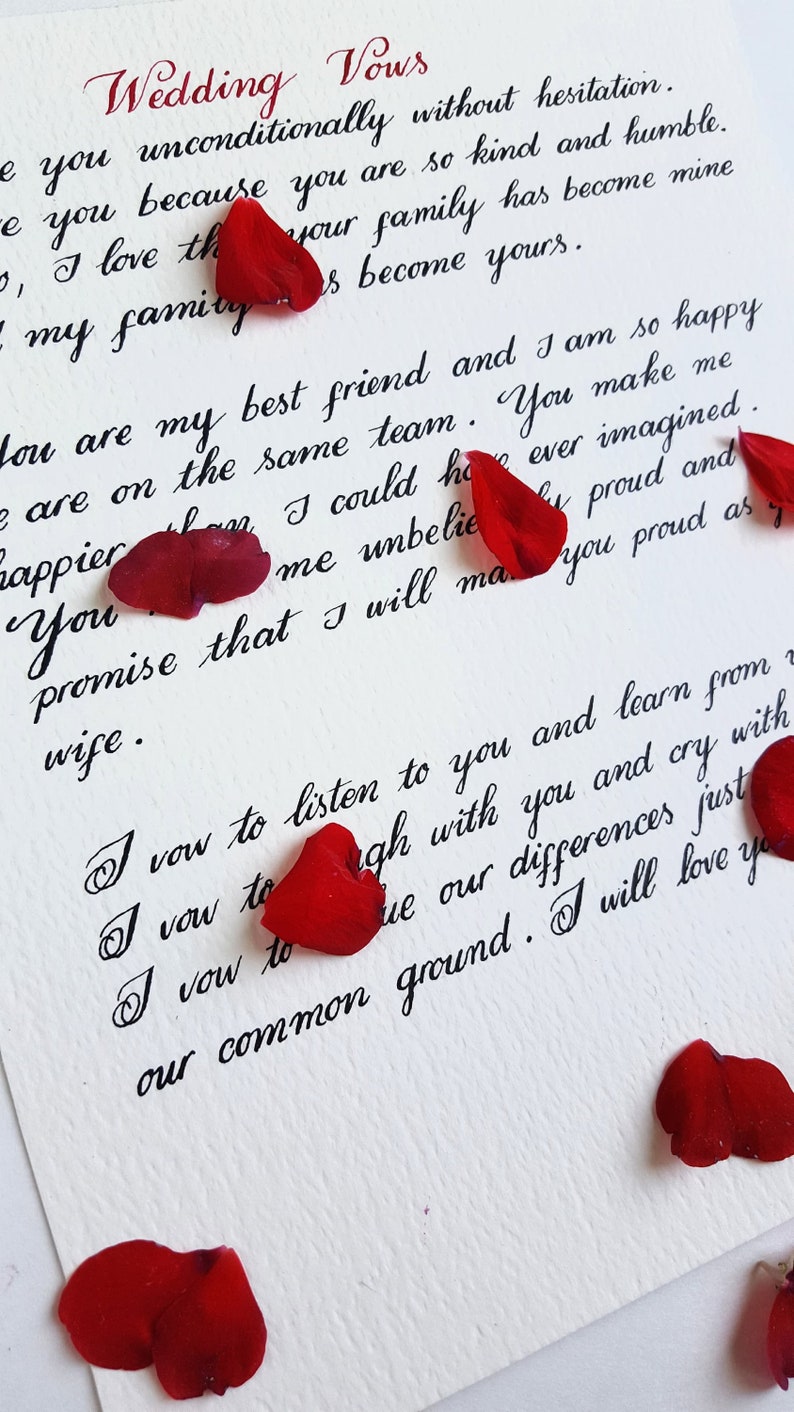 Wedding Vows
e you unconditionally without hesitation.
e you because you are so kind and humble.
o, I love your family has become mine
my family become yours.
You are my best friend and I am so happy
e are on the same team. You make me
happier than I could have ever imagined.
You me proud and
promise that I will you proud as
wife.
I vow to listen to you and learn from
I vow to with you and cry with
I vow to our differences just
our common ground. I will love